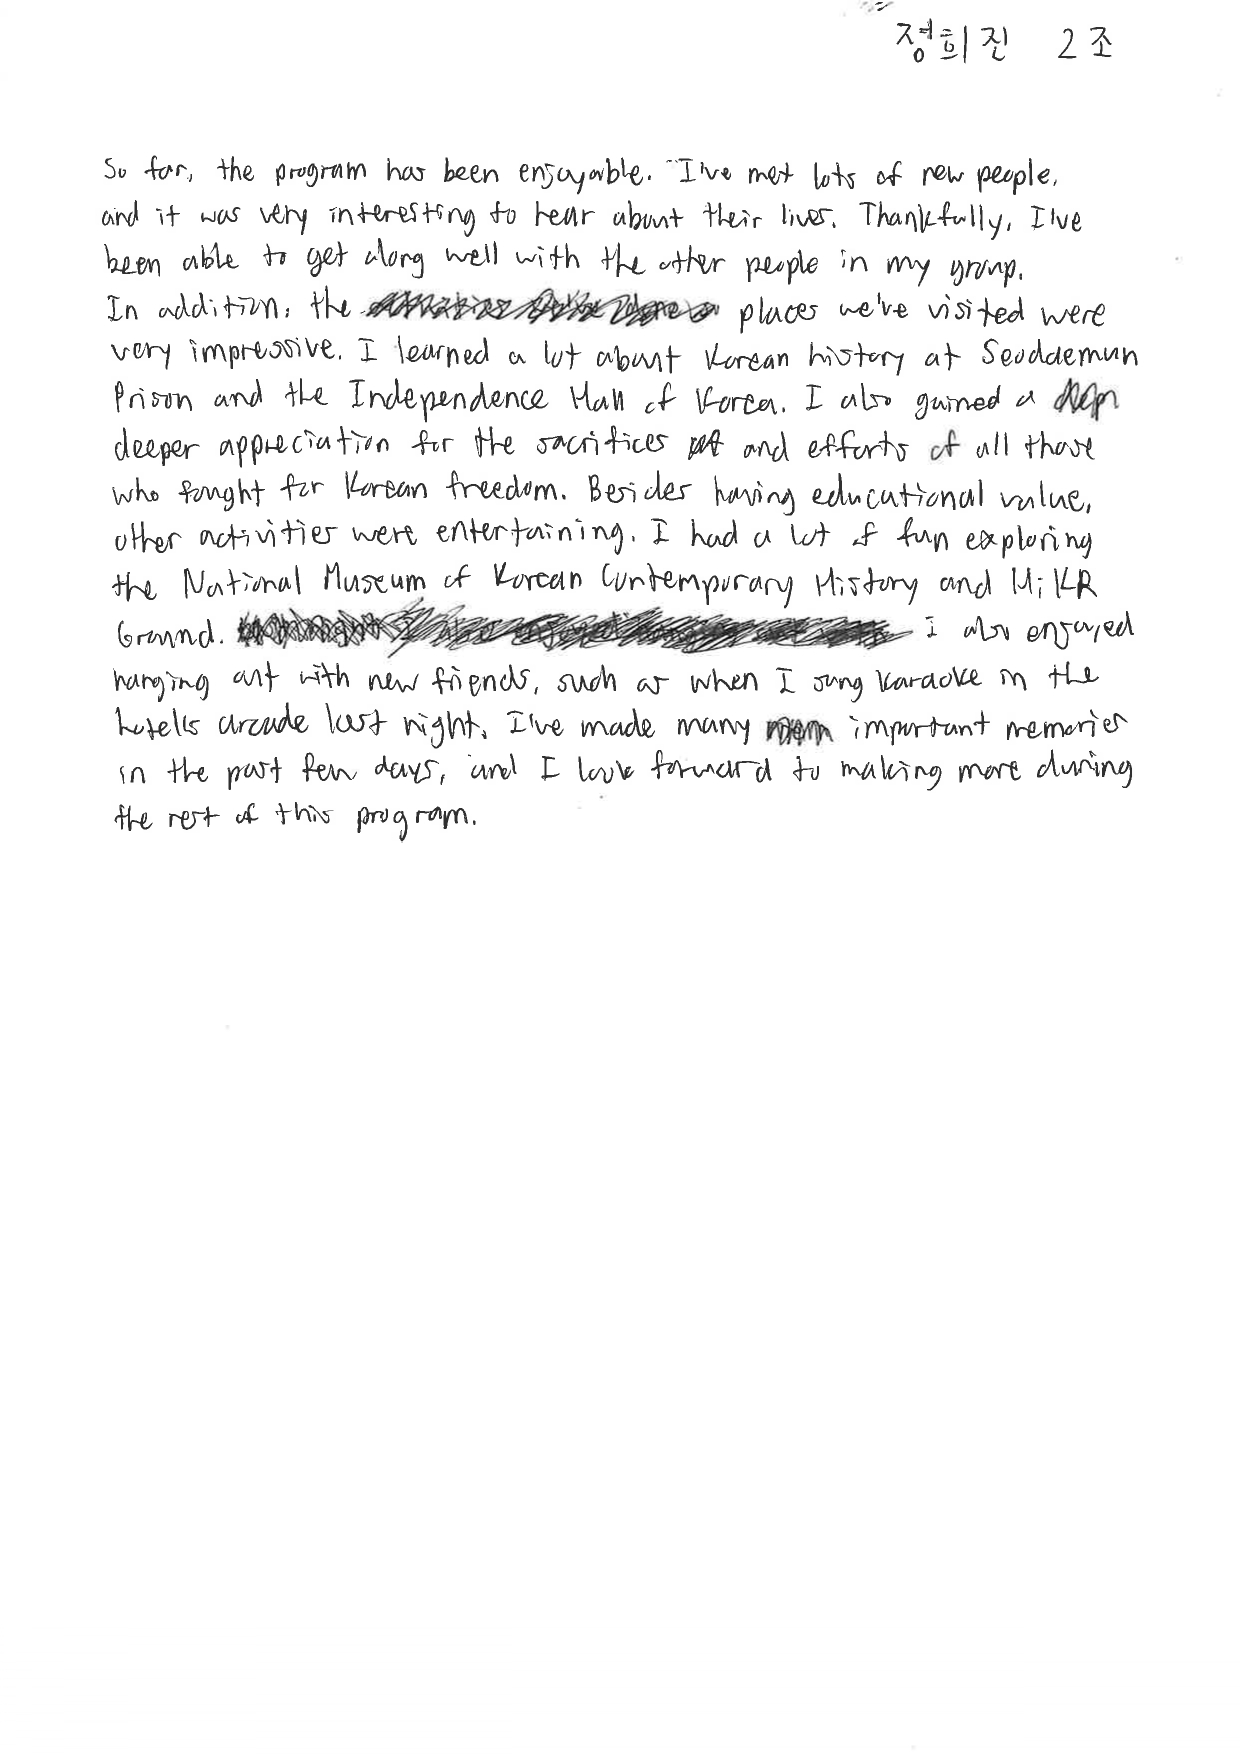 정희진 2조
So far, the program has been enjoyable. I've met lots of new people,
and it was very interesting to hear about their lives. Thankfully, I've
been able to get along well with the other people in my group.
In addition, the places we've visited were
very impressive. I learned a lot about Korean history at Seoddemun
Prison and the Independence Hall of Korea. I also gained a
deeper appreciation for the sacrifices and efforts of all those
who fought for Korean freedom. Besides having educational value,
other activities were entertaining. I had a lot of fun exploring
the National Museum of Korean Contemporary History and HiKR
Ground. I also enjoyed
hanging out with new friends, such as when I sung karaoke in the
hotel's arcade last night. I've made many important memories
in the past few days, and I look forward to making more during
the rest of this program.